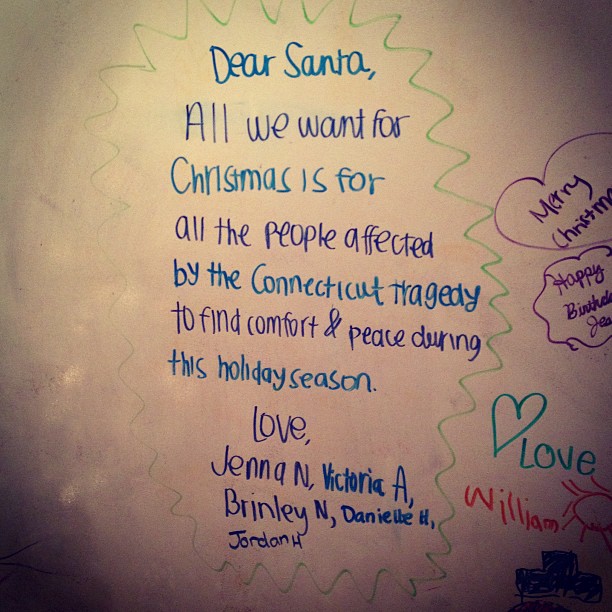 Dear Santa,
All we want for
Christmas is for
all the people affected
by the Connecticut tragedy
to find comfort & peace during
this holiday season.
Love,
Jenna N, Victoria A,
Brinley N, Danielle H,
Jordan H
Merry
Christma
Happy
Birthd
Jes
Love
William